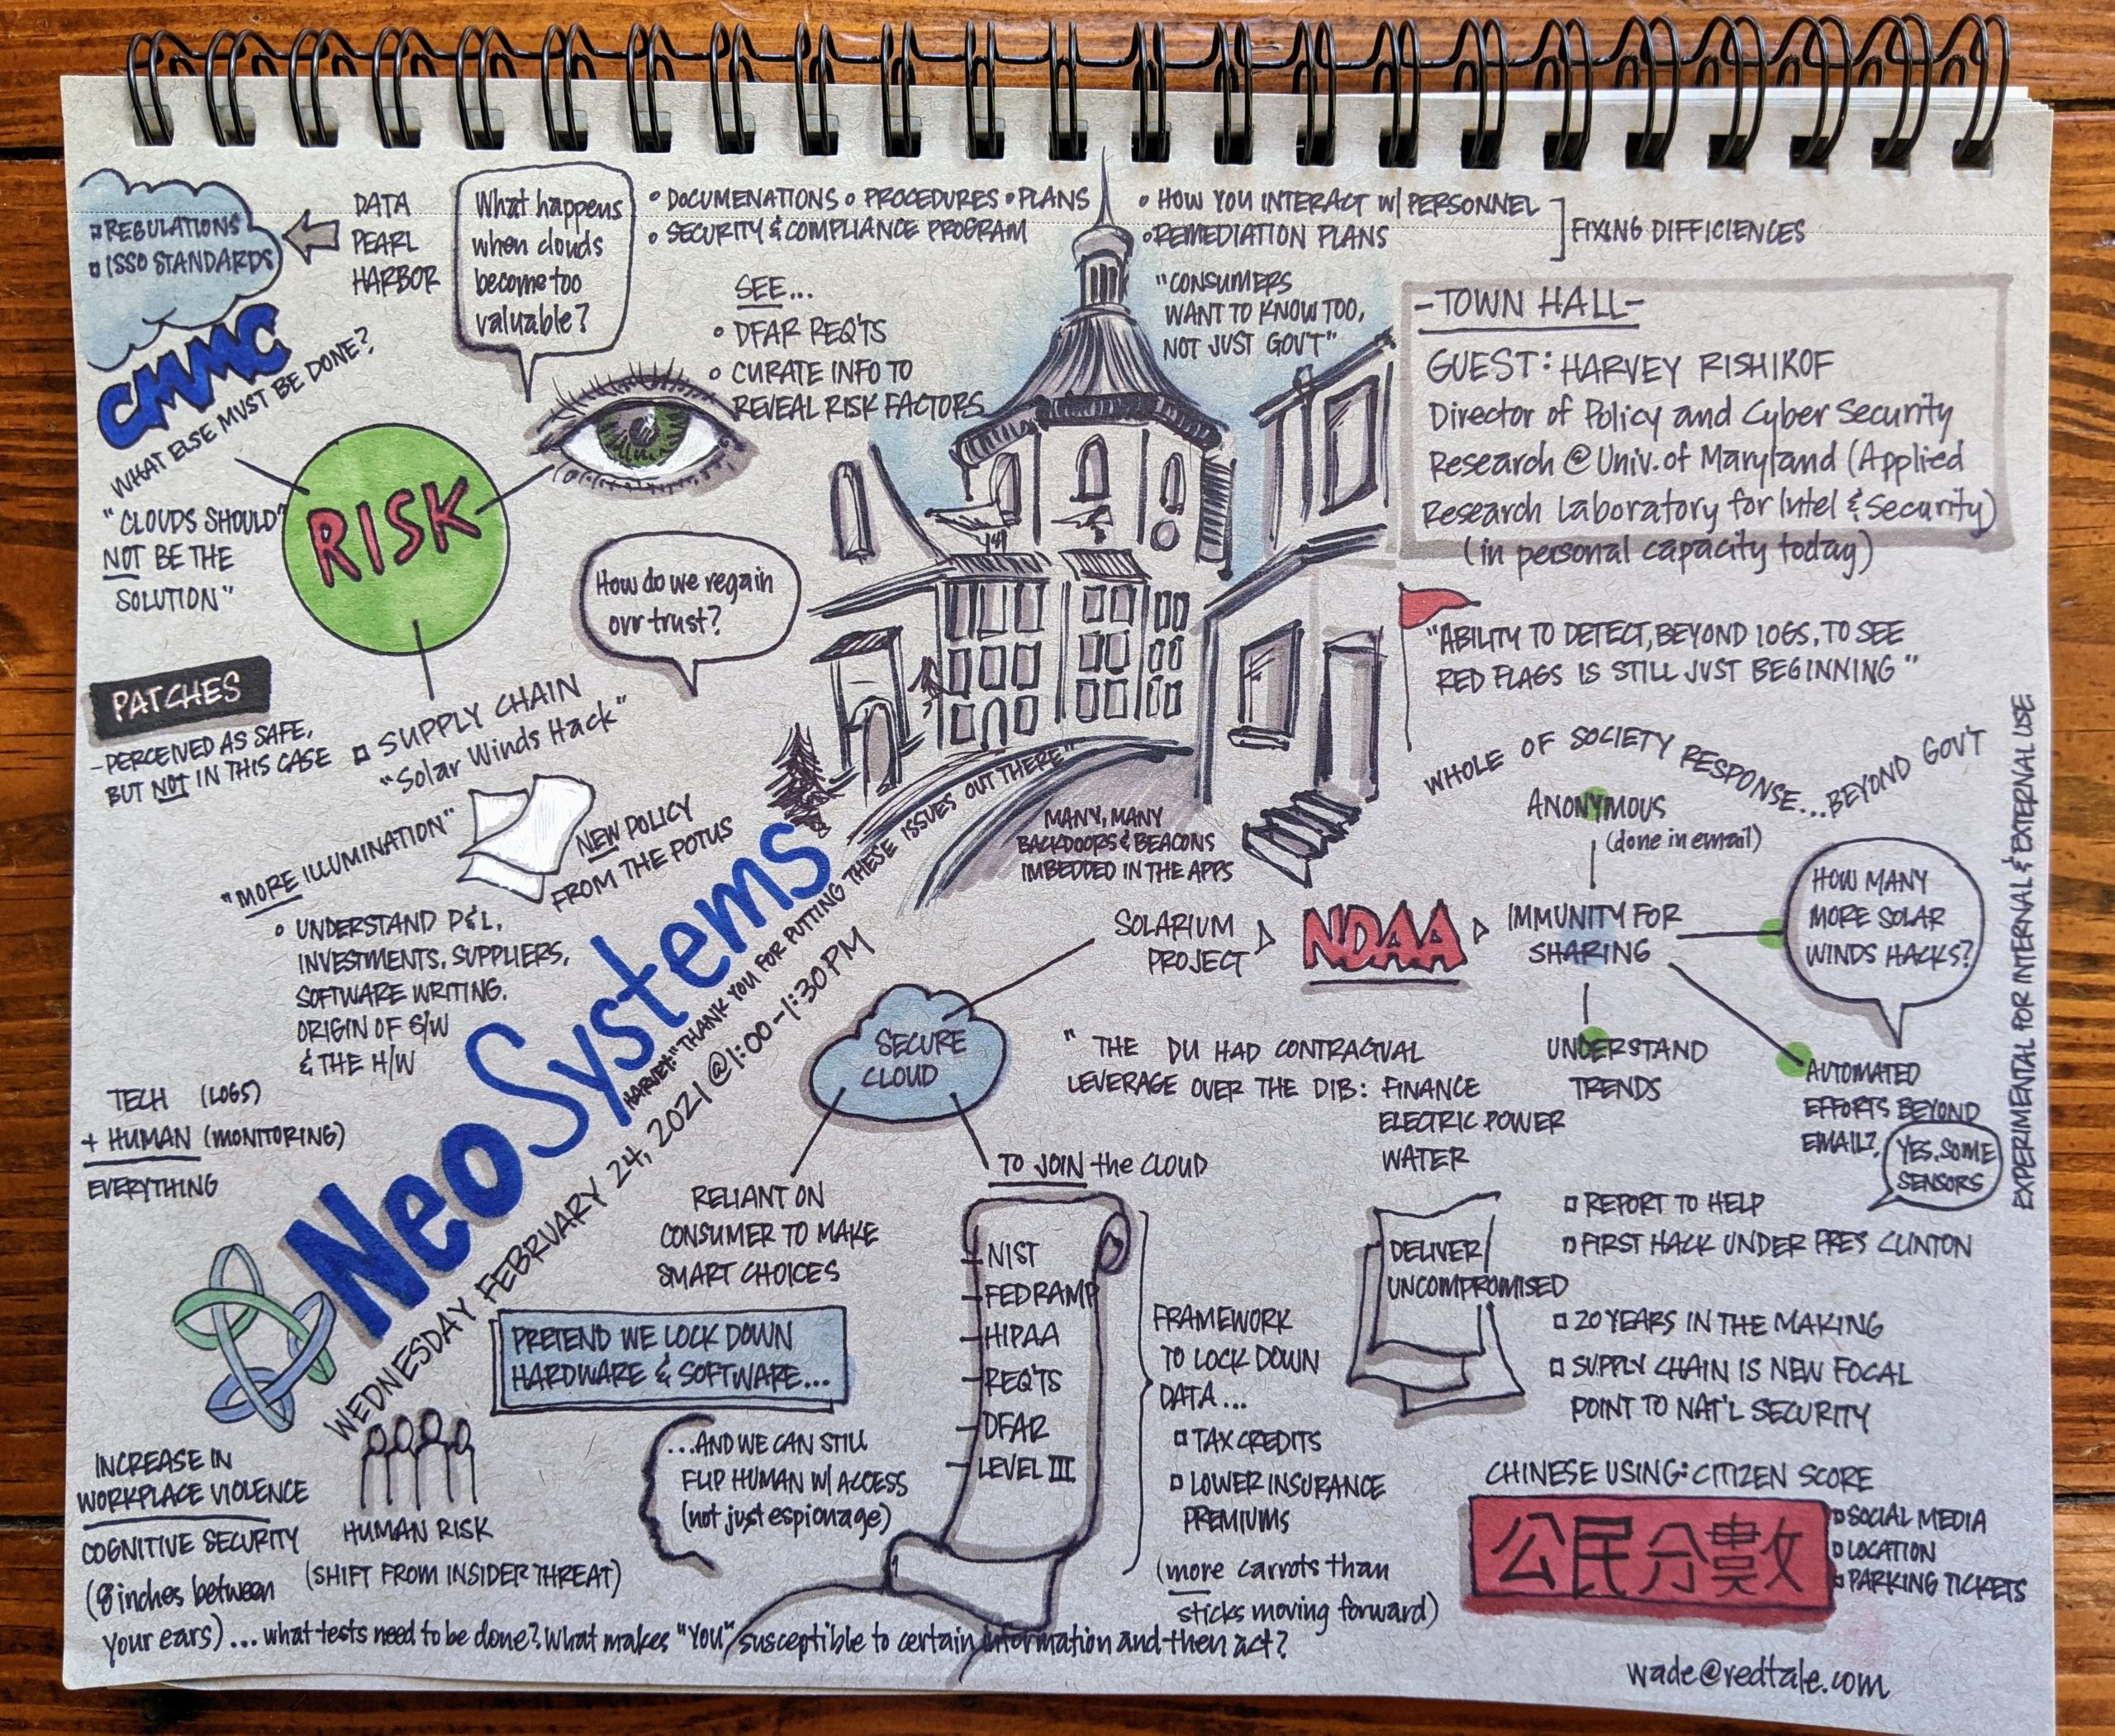 REGULATIONS
ISSO STANDARDS
DATA
PEARL
HARBOR
CMMC
WHAT ELSE MUST BE DONE?
What happens
when clouds
become too
valuable?
DOCUMENATIONS PROCEDURES PLANS
SECURITY & COMPLIANCE PROGRAM
HOW YOU INTERACT W/ PERSONNEL
REMEDIATION PLANS
FIXING DIFFICIENCES
SEE...
DFAR REQ'TS
CURATE INFO TO
REVEAL RISK FACTORS
"CONSUMERS
WANT TO KNOW TOO,
NOT JUST GOV'T"
-TOWN HALL-
GUEST: HARVEY RISHIKOF
Director of Policy and Cyber Security
Research @ Univ. of Maryland (Applied
Research Laboratory for Intel & Security)
(in personal capacity today)
RISK
"CLOUDS SHOULD
NOT BE THE
SOLUTION"
How do we regain
our trust?
"ABILITY TO DETECT, BEYOND LOGS, TO SEE
RED FLAGS IS STILL JUST BEGINNING"
PATCHES
-PERCEIVED AS SAFE,
BUT NOT IN THIS CASE
SUPPLY CHAIN
"Solar Winds Hack"
"MORE ILLUMINATION"
NEW POLICY
FROM THE POTUS
UNDERSTAND P&L,
INVESTMENTS, SUPPLIERS,
SOFTWARE WRITING.
ORIGIN OF S/W
& THE H/W
TECH (LOGS)
+ HUMAN (MONITORING)
EVERYTHING
NeoSystems
HARVEY: "THANK YOU FOR PUTTING THESE ISSUES OUT THERE"
WEDNESDAY FEBRUARY 24, 2021 @ 1:00-1:30 PM
MANY, MANY
BACKDOORS & BEACONS
IMBEDDED IN THE APPS
WHOLE OF SOCIETY RESPONSE...BEYOND GOV'T
ANONYMOUS
(done in email)
SOLARIUM
PROJECT
NDAA
IMMUNITY FOR
SHARING
HOW MANY
MORE SOLAR
WINDS HACKS?
UNDERSTAND
TRENDS
AUTOMATED
EFFORTS BEYOND
EMAIL?
YES, SOME
SENSORS
EXPERIMENTAL FOR INTERNAL & EXTERNAL USE
SECURE
CLOUD
"THE DU HAD CONTRACTUAL
LEVERAGE OVER THE DIB: FINANCE
ELECTRIC POWER
WATER
RELIANT ON
CONSUMER TO MAKE
SMART CHOICES
TO JOIN the CLOUD
NIST
FEDRAMP
HIPAA
REQ'TS
DFAR
LEVEL III
FRAMEWORK
TO LOCK DOWN
DATA...
TAX CREDITS
LOWER INSURANCE
PREMIUMS
(more carrots than
sticks moving forward)
DELIVER/
UNCOMPROMISED
REPORT TO HELP
FIRST HACK UNDER PRES CLINTON
20 YEARS IN THE MAKING
SUPPLY CHAIN IS NEW FOCAL
POINT TO NAT'L SECURITY
PRETEND WE LOCK DOWN
HARDWARE & SOFTWARE...
...AND WE CAN STILL
FLIP HUMAN W/ ACCESS
(not just espionage)
HUMAN RISK
(SHIFT FROM INSIDER THREAT)
INCREASE IN
WORKPLACE VIOLENCE
COGNITIVE SECURITY
(8 inches between
your ears)...what tests need to be done? What makes "YOU" susceptible to certain information and then act?
CHINESE USING: CITIZEN SCORE
公民分數
SOCIAL MEDIA
LOCATION
PARKING TICKETS
wade@redtale.com